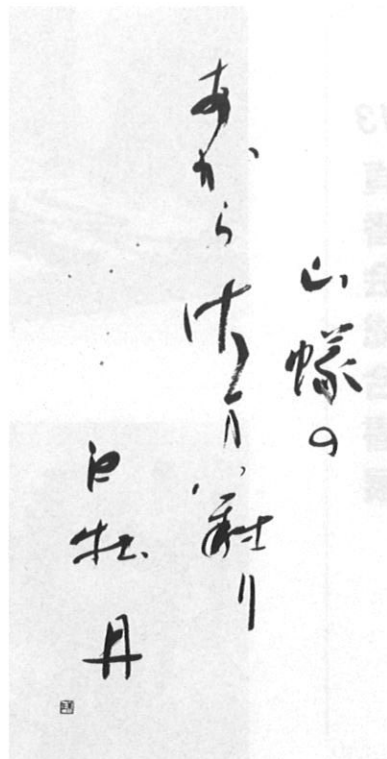 山蟻の
あからさまなり
白牡丹